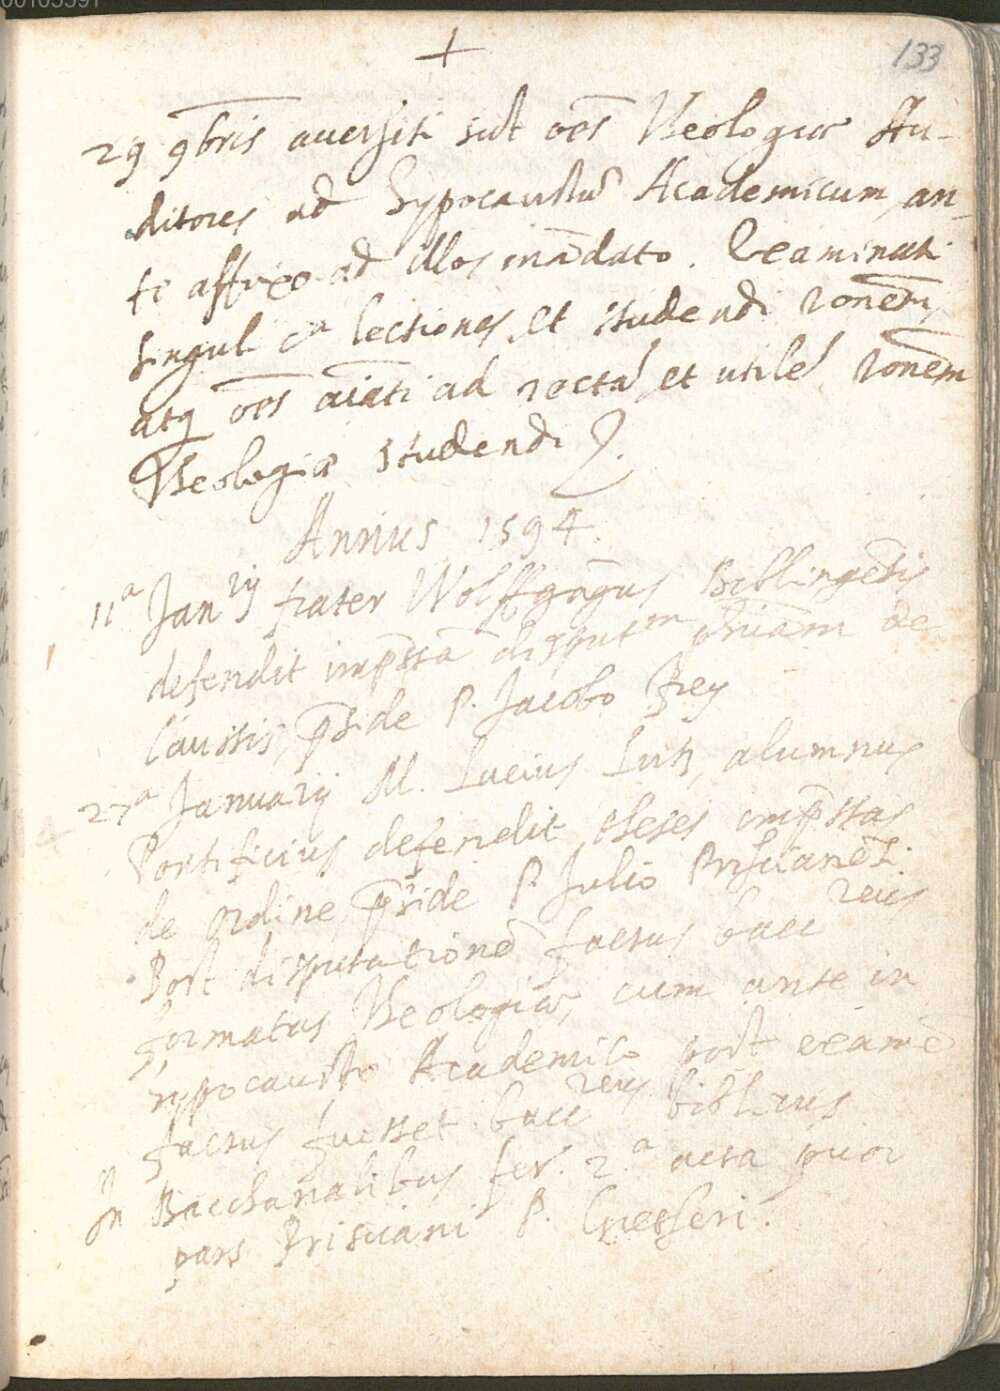 00103391
133
29 9bris aversiti sūt oēs Theologiæ Au-
ditores ad hypocaustū Academicum, an-
te affixo ad illos mādato. Examinati
singuli c^a lectiones et studendi rōnem,
atq oēs aīati ad rectā et utilē rōnem
Theologiæ studendi.
Annus 1594.
11^a Januarij frater Wolffgāgus Biblingēsis
defendit imp̄ssā disput^m de
Caussis, p̄side P. Jacobo Frey
27^a Januarij M. Lucius alumnus
Pontificius defendit theses imp̄ssas
de ordine, p̄side P. Julio Prisciane͂s.
Post disputationē factus bacc^reus
formatus Theologiæ, cum ante in
hypocausto Academico post examē
factus fuisset bacc^reus biblicus
In Bacchanalibus fer. 2.^a acta prior
pars Prisciani P. Gretseri.